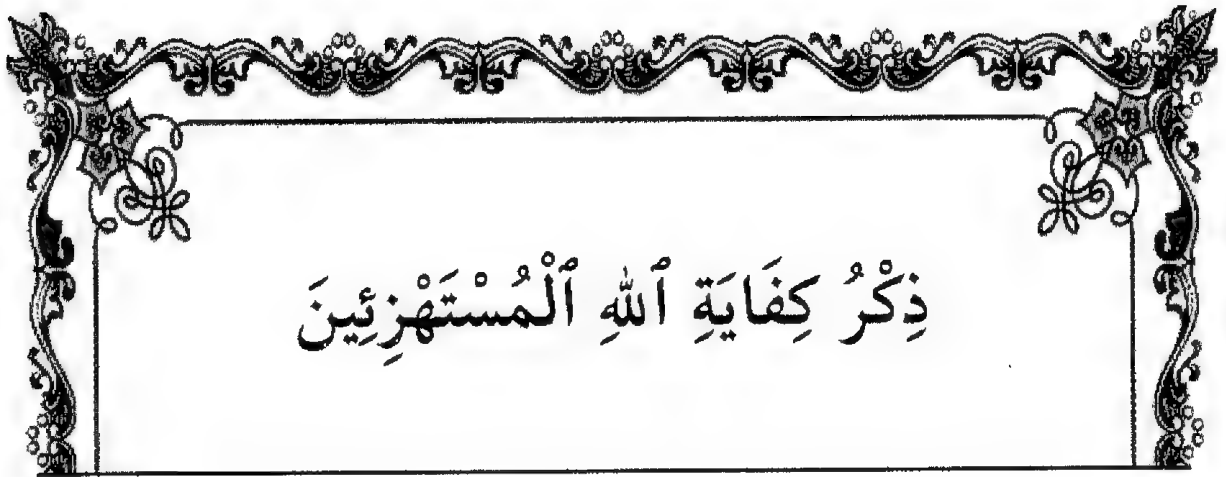 ذِكْرُ كِفَايَةِ ٱللهِ ٱلْمُسْتَهْزِئِينَ